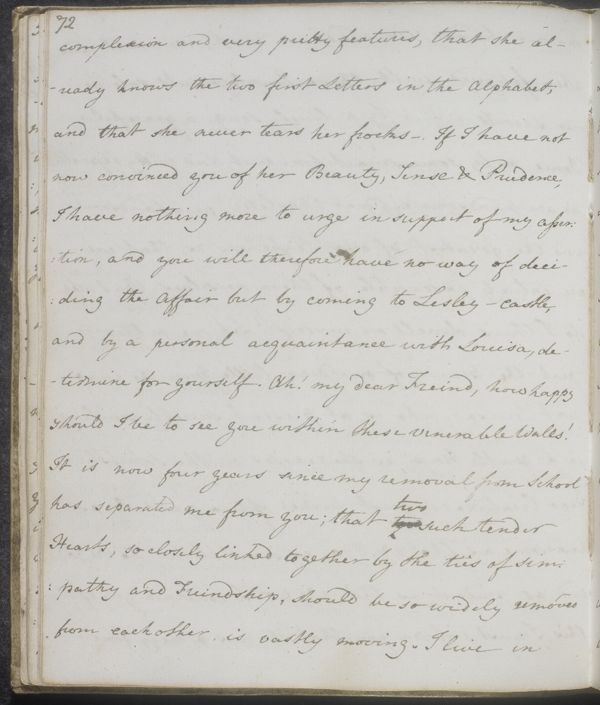 72
complexion and very pretty features, that she al-
-ready knows the two first Letters in the Alphabet,
and that she never tears her frocks -. If I have not
now convinced you of her Beauty, Sense & Prudence,
I have nothing more to urge in support of my asser:
:tion, and you will therefore have no way of deci-
:ding the Affair but by coming to Lesley-castle,
and by a personal acquaintance with Louisa, de-
-termine for yourself. Ah! my dear Freind, how happy
should I be to see you within these venerable Walls!
It is now four years since my removal from School
has separated me from you; that two such tender
Hearts, so closely linked together by the ties of sim:
:pathy and Freindship, should be so widely removed
from each other, is vastly moving. I live in